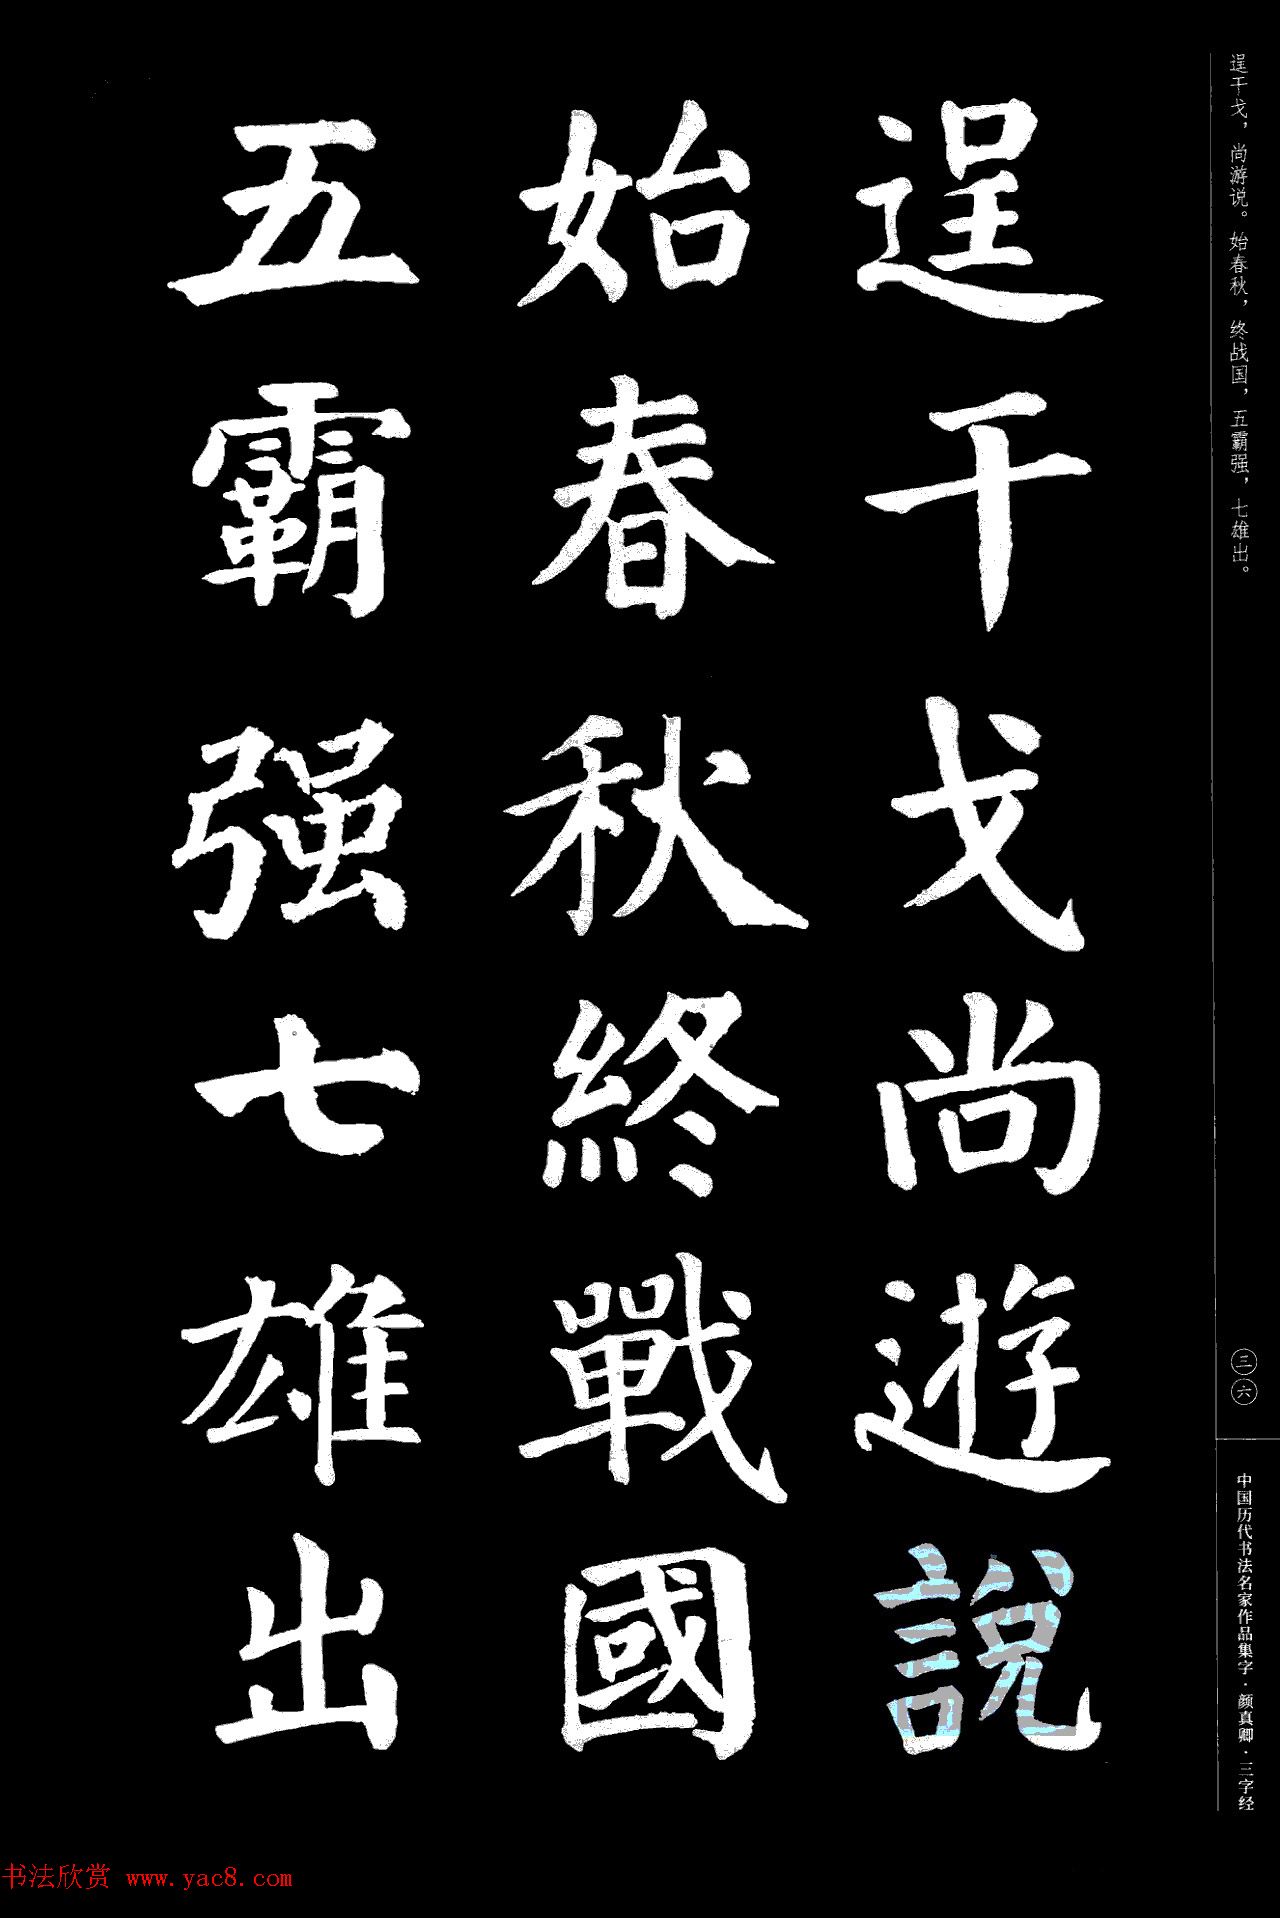 逞干戈尚遊說
始春秋終戰國
五霸强七雄出
逞干戈，尚游说。始春秋，终战国，五霸强，七雄出。
三六
中国历代书法名家作品集字·颜真卿·三字经
书法欣赏 www.yac8.com